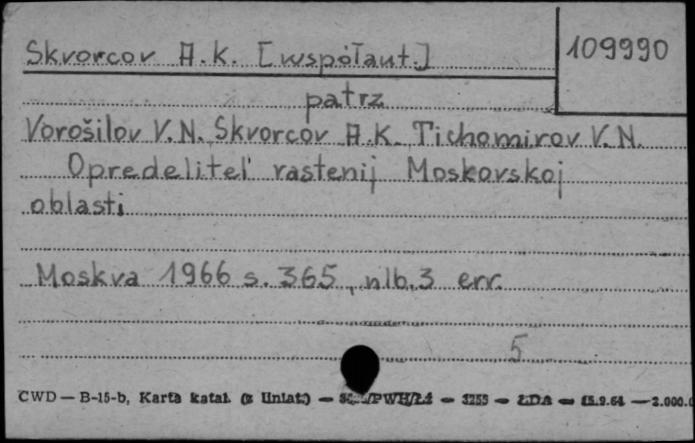 Skvorcov A.K. [współaut.]
109990
patrz
Vorošilov V.N. Skvorcov A.K. Tichomirov V.N.
Opredelitel' rastenij Moskovskoj
oblasti
Moskva 1966 s. 365, nlb.3 err.
5
CWD — B-15-b, Karta katal. (z liniat.) — — 3255 — ŁDA — 15.9.64 — 2.000.0